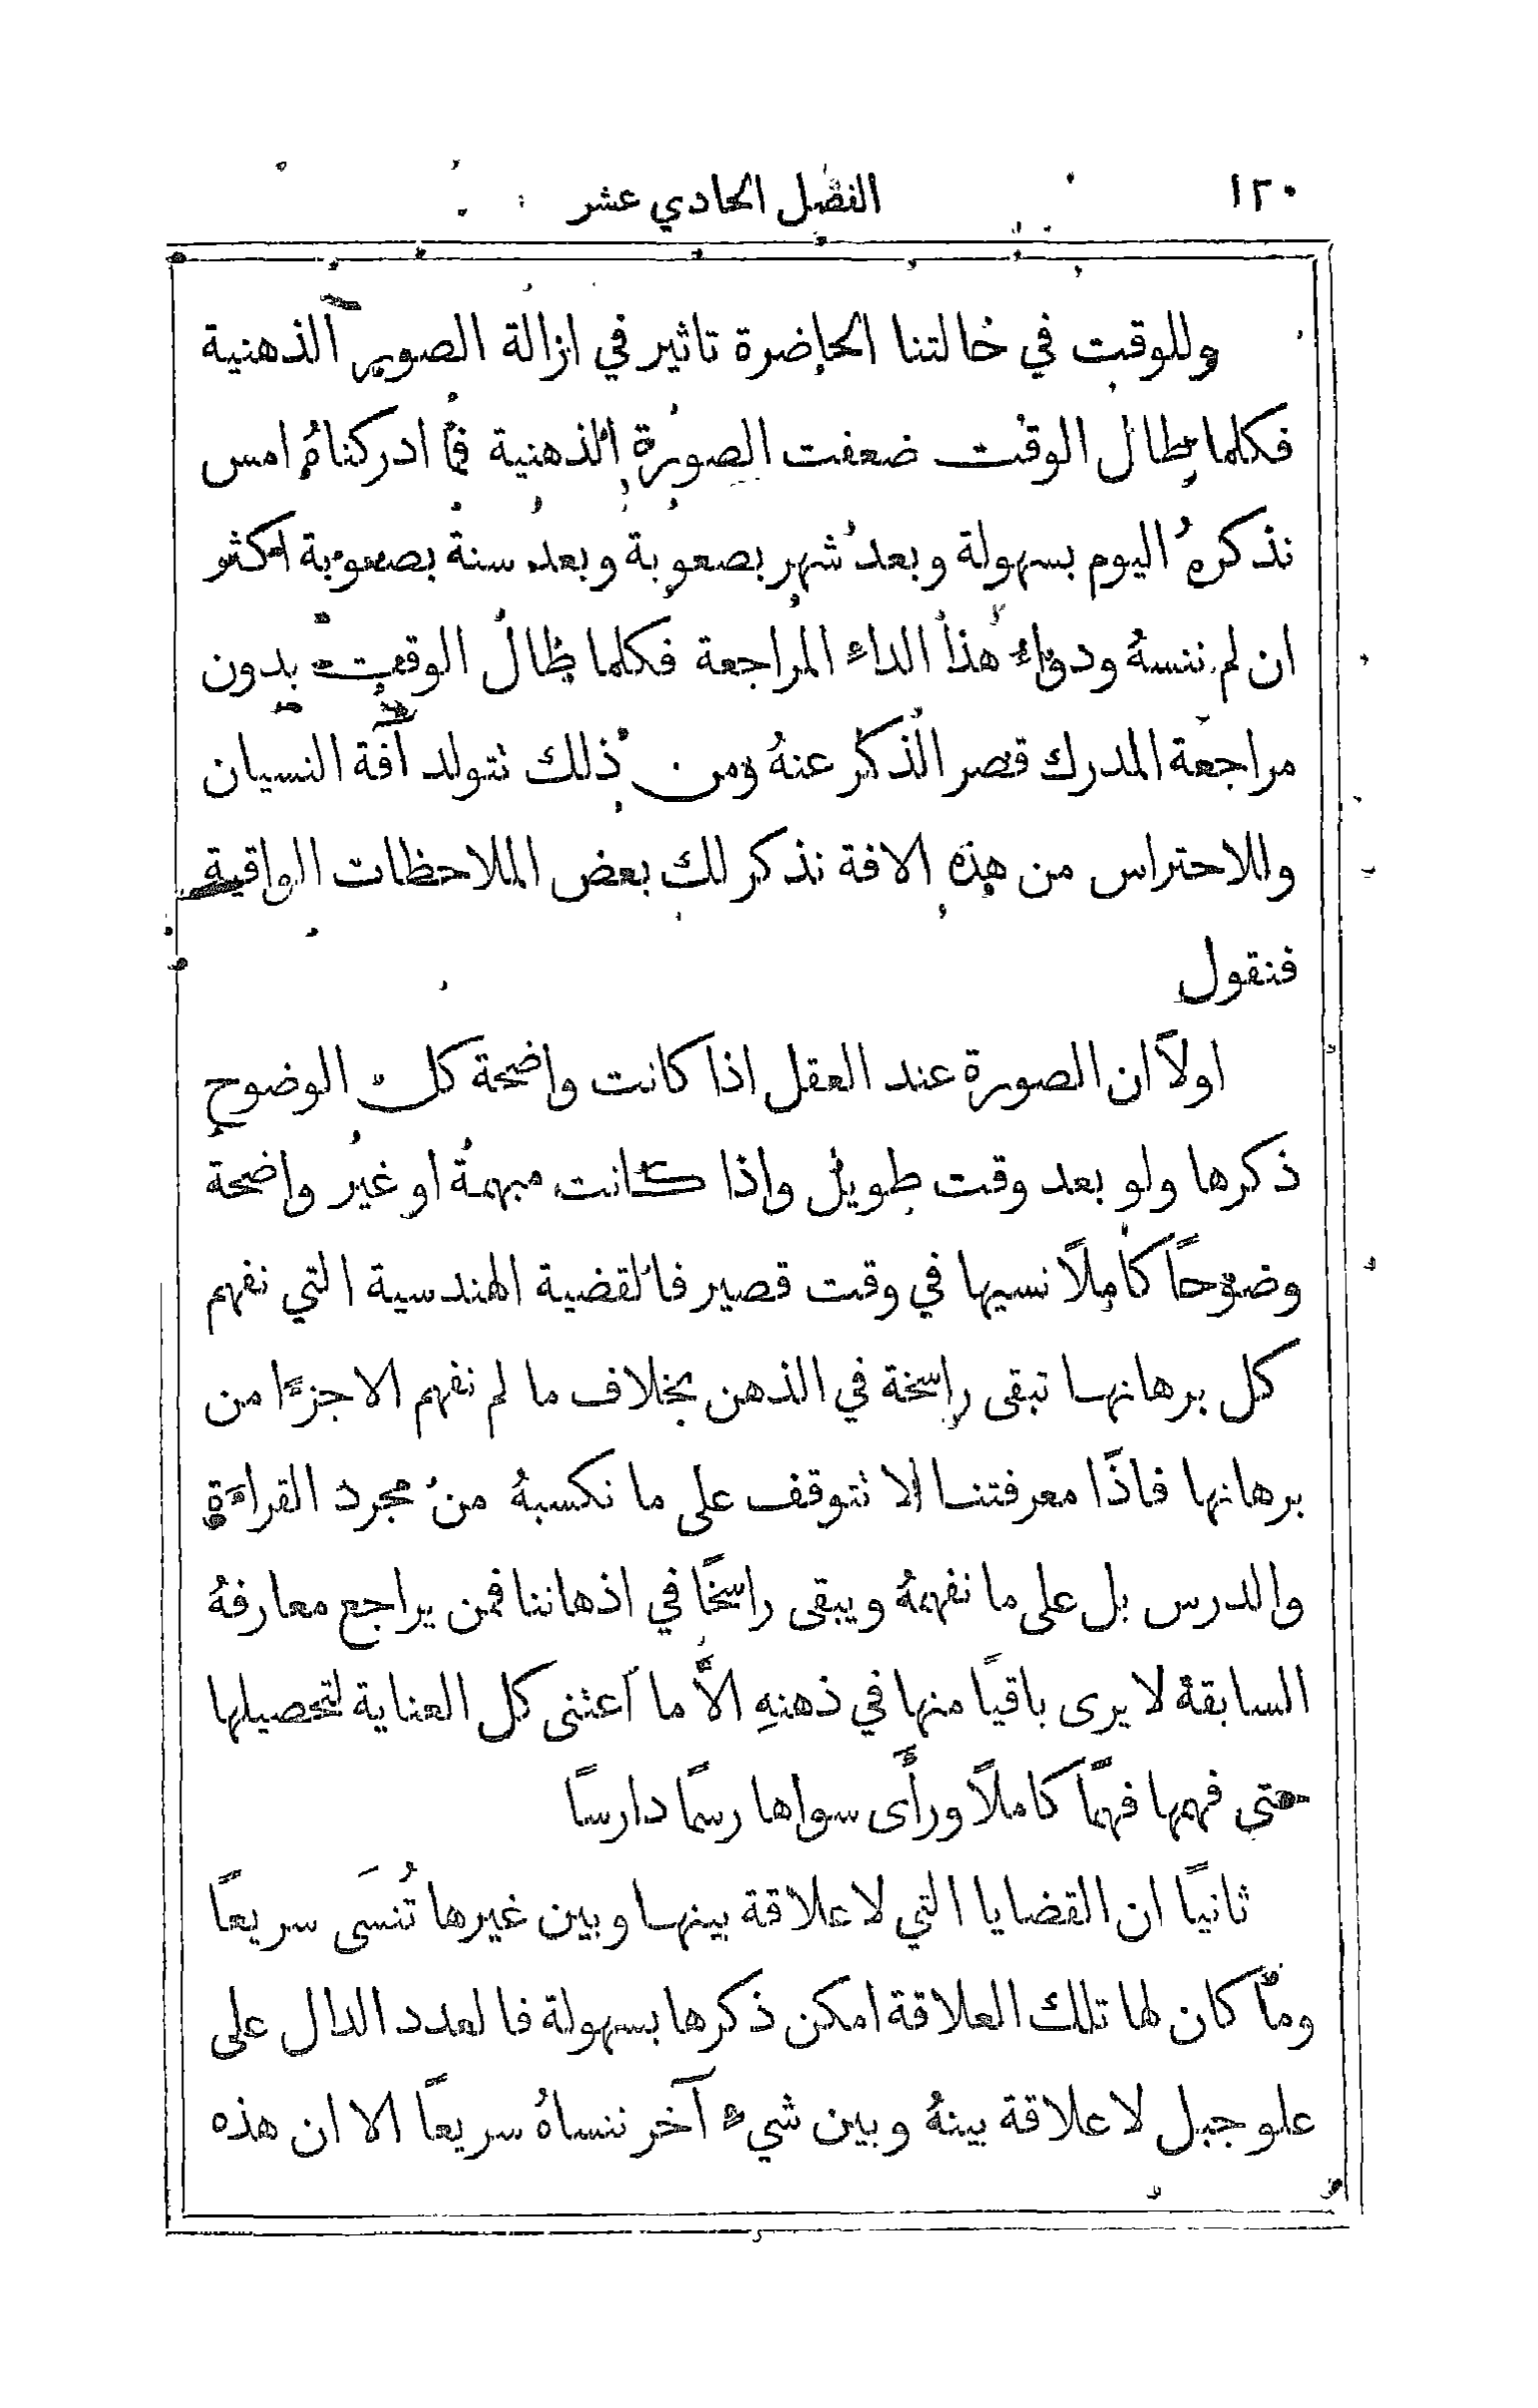 ١٢٠ الفصل الحادي عشر
وللوقت في حالتنا الحاضرة تاثير في ازالة الصور الذهنية
فكلما طال الوقت ضعفت الصورة الذهنية فما ادركناهُ امس
نذكرهُ اليوم بسهولة وبعد شهر بصعوبة وبعد سنة بصعوبة اكثر
ان لم ننسهُ ودواء هذا الداء المراجعة فكلما طال الوقت بدون
مراجعة المدرك قصر الذكر عنهُ ومن ذلك نتولد آفة النسيان
وللاحتراس من هذه الافة نذكر لك بعض الملاحظات الواقية
فنقول
اولاً ان الصورة عند العقل اذا كانت واضحة كل الوضوح
ذكرها ولو بعد وقت طويل واذا كانت مبهمة او غير واضحة
وضوحًا كاملًا نسيها في وقت قصير فالقضية الهندسية التي نفهم
كل برهانها تبقى راسخة في الذهن بخلاف ما لم نفهم الا جزءًا من
برهانها فاذًا معرفتنا لا نتوقف على ما نكسبهُ من مجرد القراءة
والدرس بل على ما نفهمهُ ويبقى راسخًا في اذهاننا فمن يراجع معارفهُ
السابقة لا يرى باقيًا منها في ذهنهِ الاَّ ما اعتنى كل العناية لتحصيلها
حتى فهمها فهمًا كاملًا ورأَى سواها رسمًا دارسًا
ثانيًا ان القضايا التي لا علاقة بينها وبين غيرها تُنسَى سريعًا
وما كان لها تلك العلاقة امكن ذكرها بسهولة فالعدد الدال على
علو جبل لا علاقة بينهُ وبين شيء آخر ننساهُ سريعًا الا ان هذه